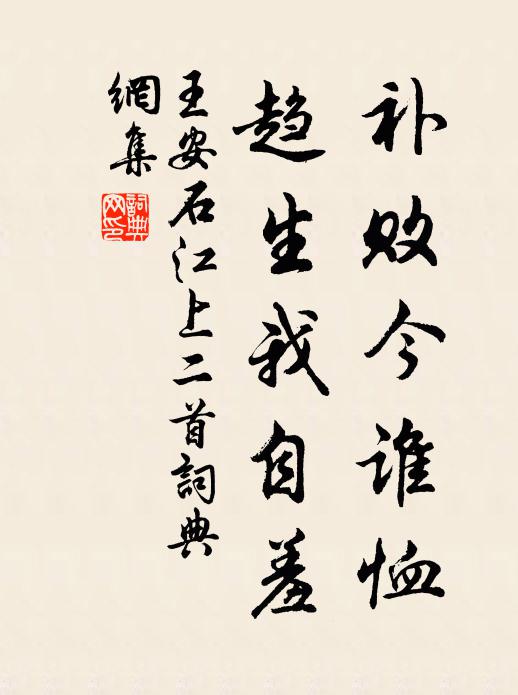 补败今谁恤
趋生我自羞
王安石江上二首詞典
網集
詞典网印